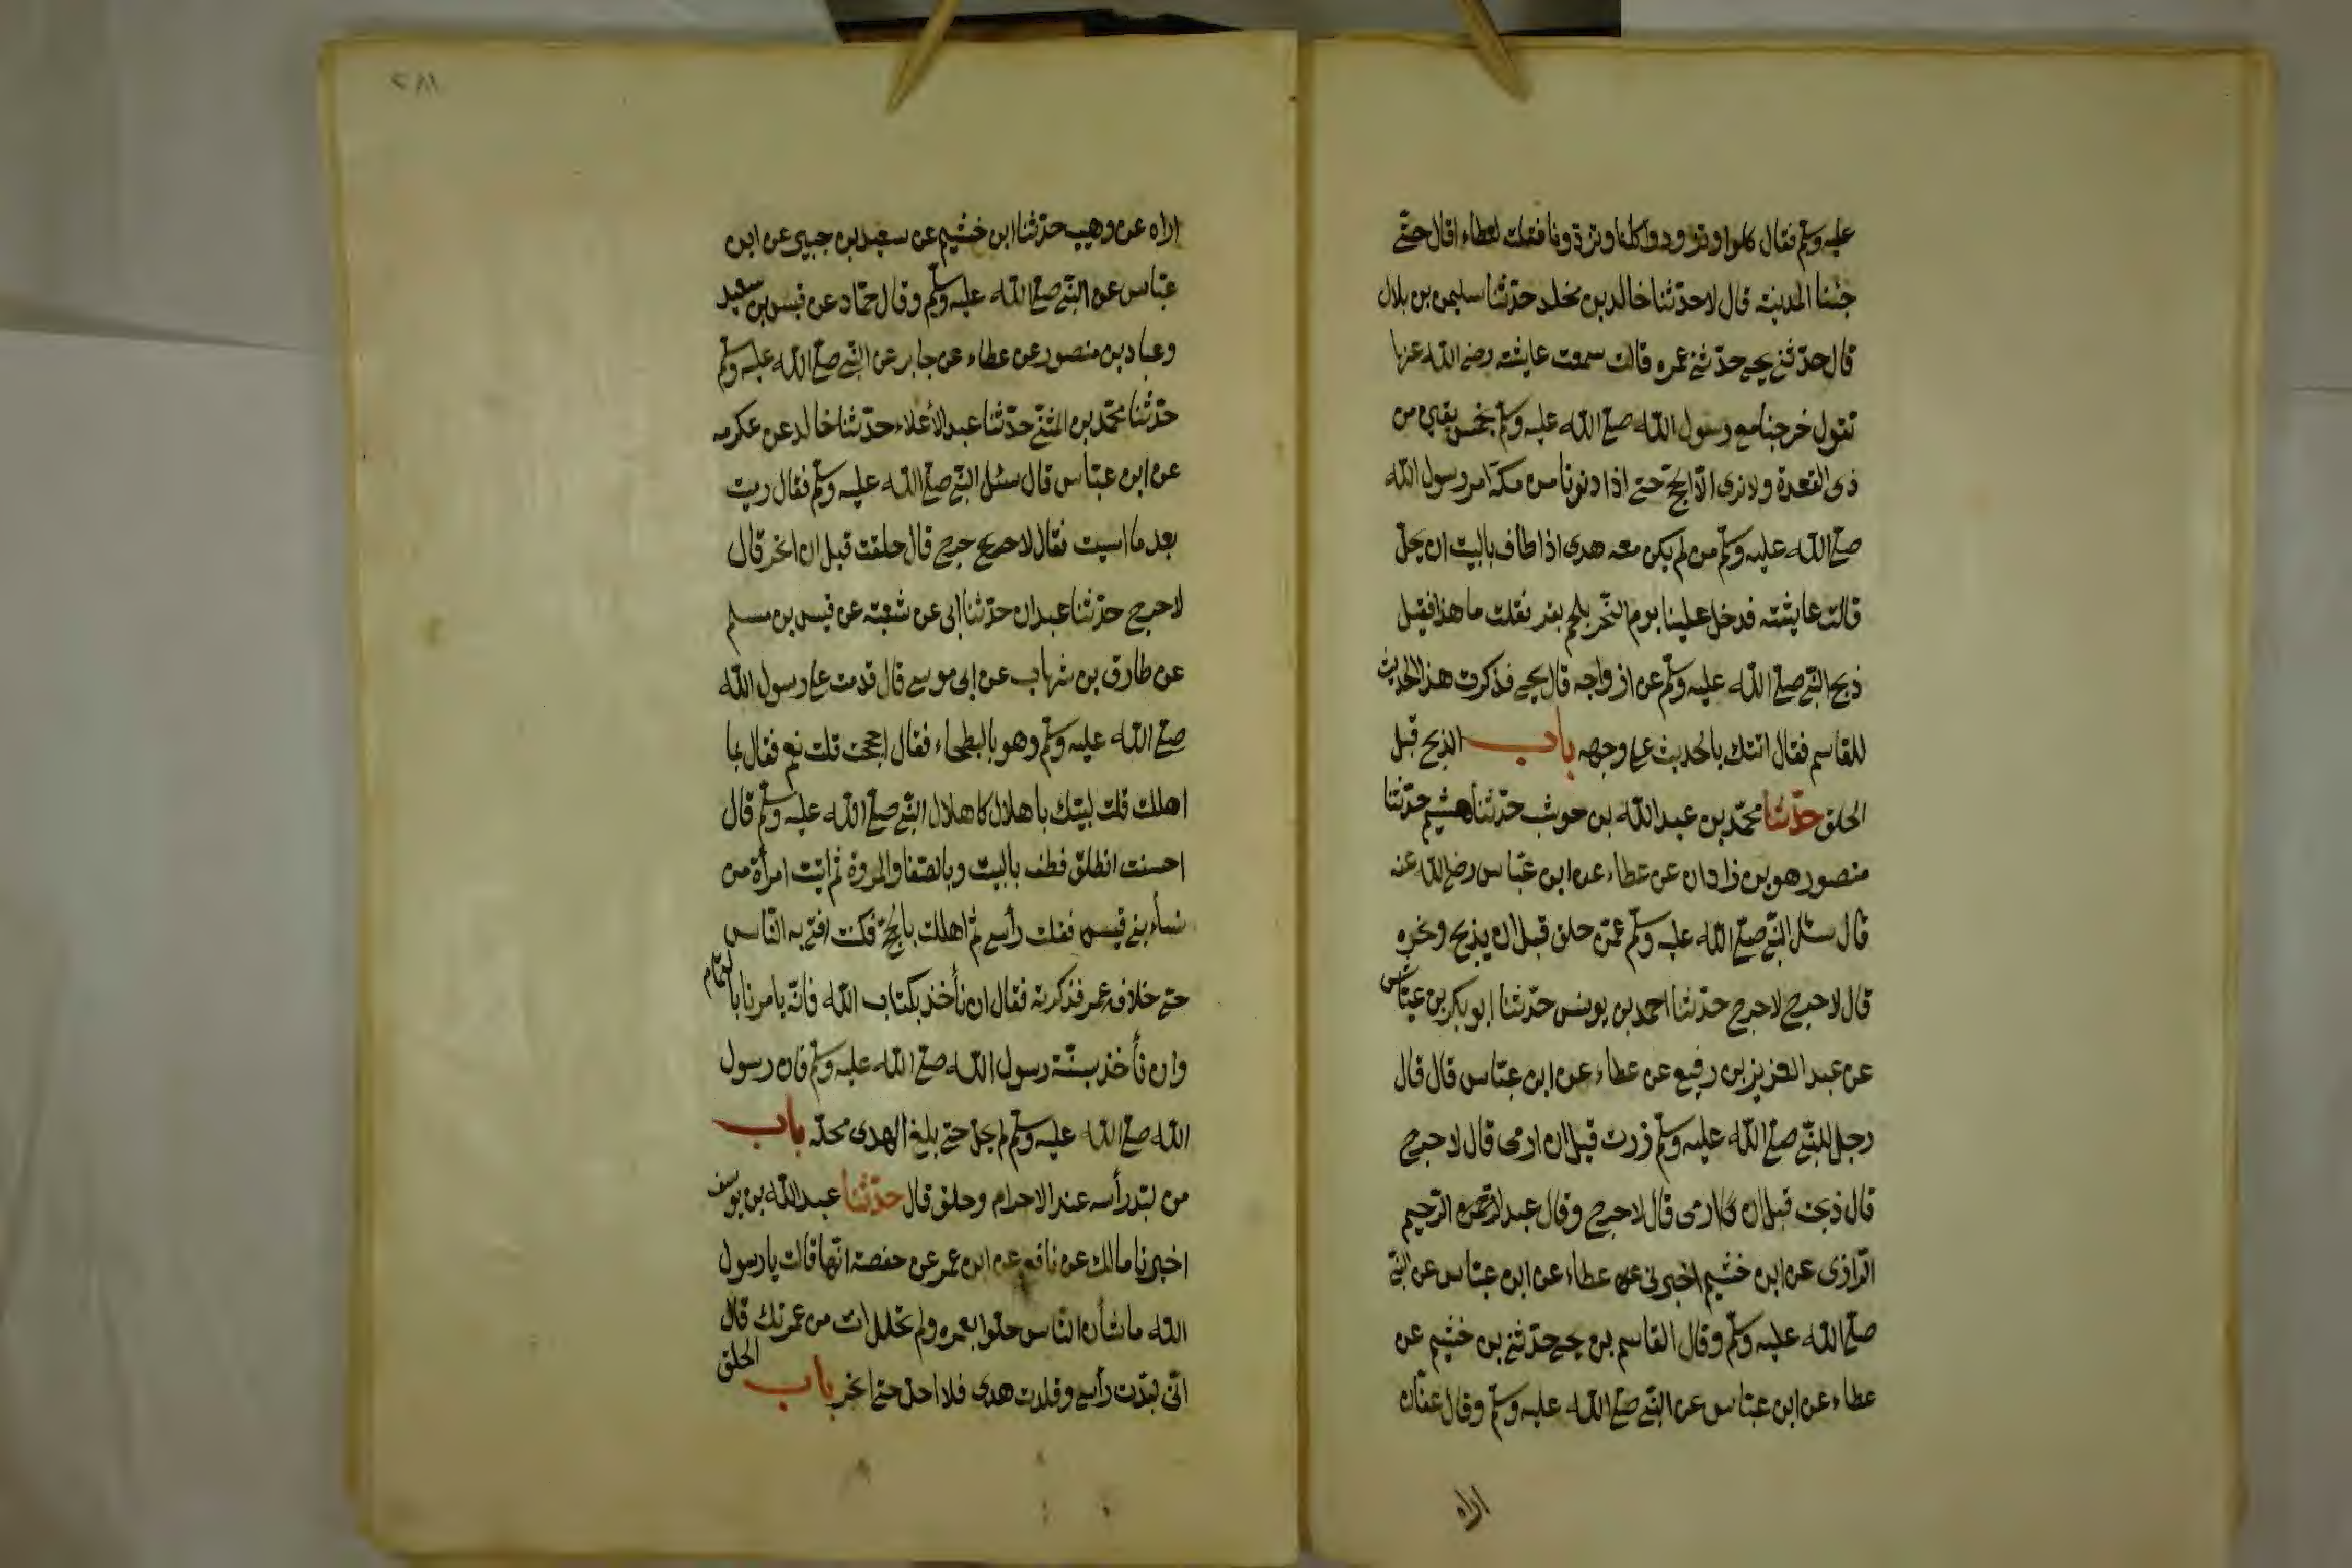 عليه وسلّم فقال كلوا وتزودوا كلنا وتزوّدونا فقلت لعطاء اقال حتّى
جئنا المدينة قال لا حدّثنا خالد بن مخلد حدّثنا سليمن بن بلال
قال حدّثنى يحيى حدّثنى عمره قالت سمعت عايشه رضى الله عنها
تقول خرجنا مع رسول الله صلى الله عليه وسلّم بخمس بقين من
ذى القعدة ولا نرى الّا الحجّ حتى اذا دنونا من مكّة امر رسول الله
صلى الله عليه وسلّم من لم يكن معه هدى اذا طاف بالبيت ان يحلّ
قالت عايشة فدخل علينا يوم النّحر بلحم بقر فقلت ما هذا فقيل
ذبح النّبى صلى الله عليه وسلّم عن ازواجه قال يحيى فذكرت هذا الحديث
للقاسم فقال اتتك بالحديث على وجهه باب الذبح قبل
الحلق حدّثنا محمّد بن عبد الله بن حوشب حدّثنا هشيم حدّثنا
منصور هو بن زاذان عن عطاء عن ابن عبّاس رضى الله عنه
قال سئل النّبى صلى الله عليه وسلّم عمّن حلق قبل ان يذبح ونحره
قال لا حرج لا حرج حدّثنا احمد بن يونس حدّثنا ابو بكر بن عيّاش
عن عبد العزيز بن رفيع عن عطاء عن ابن عبّاس قال قال
رجل للنّبى صلى الله عليه وسلّم زرت قبل ان ارمى قال لا حرج
قال ذبحت قبل ان ارمى قال لا حرج وقال عبد الرّحمن الرّحيم
الرّازى عن ابن خثيم اخبرنى عن عطاء عن ابن عبّاس عن النّبى
صلّى الله عليه وسلّم وقال القاسم بن يحيى حدّثنى بن خثيم عن
عطاء عن ابن عبّاس عن النّبى صلى الله عليه وسلّم وقال عفّان
اراه
٢٨١
اراه عن وهيب حدّثنا ابن خثيم عن سعيد بن جبير عن ابن
عبّاس عن النّبى صلى الله عليه وسلّم وقال حمّاد عن قيس بن سعيد
وعباد بن منصور عن عطاء عن جابر عن النّبى صلى الله عليه وسلّم
حدّثنا محمّد بن المثنّى حدّثنا عبد الأعلاء حدّثنا خالد عن عكرمه
عن ابن عبّاس قال سئل النّبى صلى الله عليه وسلّم فقال رميت
بعد ما امسيت فقال لا حرج قال حلقت قبل ان انحر قال
لا حرج حدّثنا عبدان حدّثنا ابى عن شعبة عن قيس بن مسلم
عن طارق بن شهاب عن ابى موسى قال قدمت على رسول الله
صلى الله عليه وسلّم وهو بالبطحاء فقال احججت قلت نعم فقال بما
اهللت قلت لبيّك باهلال كاهلال النّبى صلى الله عليه وسلّم قال
احسنت انطلق فطف بالبيت وبالصّفا والمروة ثم اتيت امرأة من
نساء بنى قيس ففلت رأسى ثم اهللت بالحجّ فكنت افتى به النّاس
حتى خلافه عمر فذكرته فقال ان نأخذ بكتاب الله فانّه يامرنا بالتّمام
وان نأخذ بسنّة رسول الله صلى الله عليه وسلّم فان رسول
الله صلى الله عليه وسلّم لم يحلّ حتى بلغ الهدى محلّه باب
من لبّد رأسه عند الاحرام وحلق قال حدّثنا عبد الله بن يوسف
اخبرنا مالك عن نافع عن ابن عمر عن حفصة انّها قالت يا رسول
الله ما شأن النّاس حلّوا بعمره ولم تحلل انت من عمرتك قال
انّى لبّدت رأسى وقلدت هدى فلا احلّ حتى انحر باب الحلق